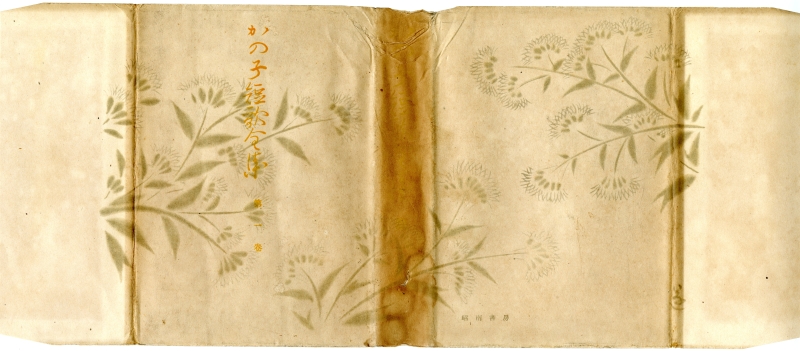 かの子短歌全集
第一巻
昭南書房